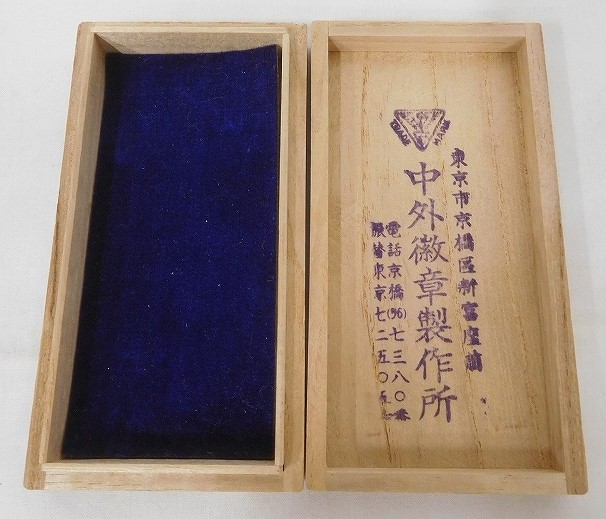 TRADE MARK
東京市京橋區新富座前
中外徽章製作所
電話京橋(56)七三八〇番
振替東京七二五〇五